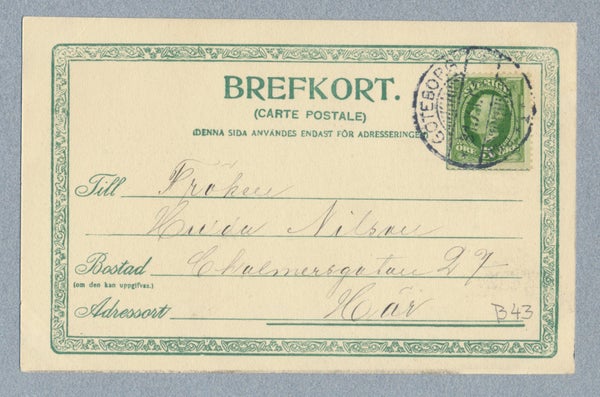 BREFKORT.
(CARTE POSTALE)
(DENNA SIDA ANVÄNDES ENDAST FÖR ADRESSERINGEN
GÖTEBORG
SVERIGE
Till Fröken
Hulda Nilson
Bostad Chalmersgatan 27
(om den kan uppgifvas.)
Adressort Här
B43